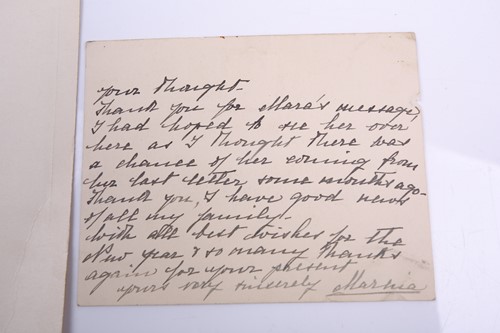 your thought.
Thank you for Mara's message,
I had hoped to see her over
here as I thought there was
a chance of her coming from
her last letter some months ago.
Thank you, I have good news
of all my family.
With all best wishes for the
New Year & so many thanks
again for your present
yours very sincerely Marina